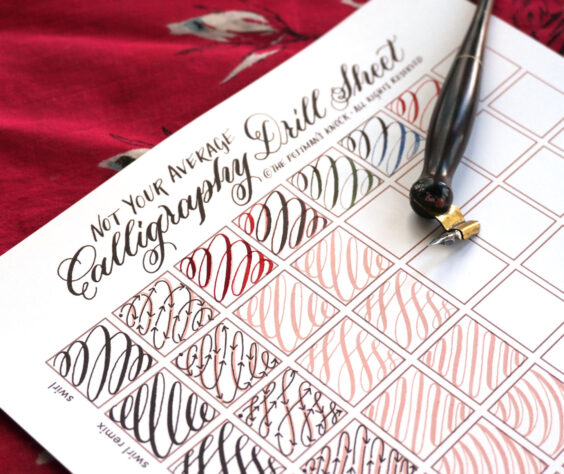 NOT YOUR AVERAGE
Calligraphy Drill Sheet
© THE POSTMAN'S KNOCK · ALL RIGHTS RESERVED
swirl
swirl remix